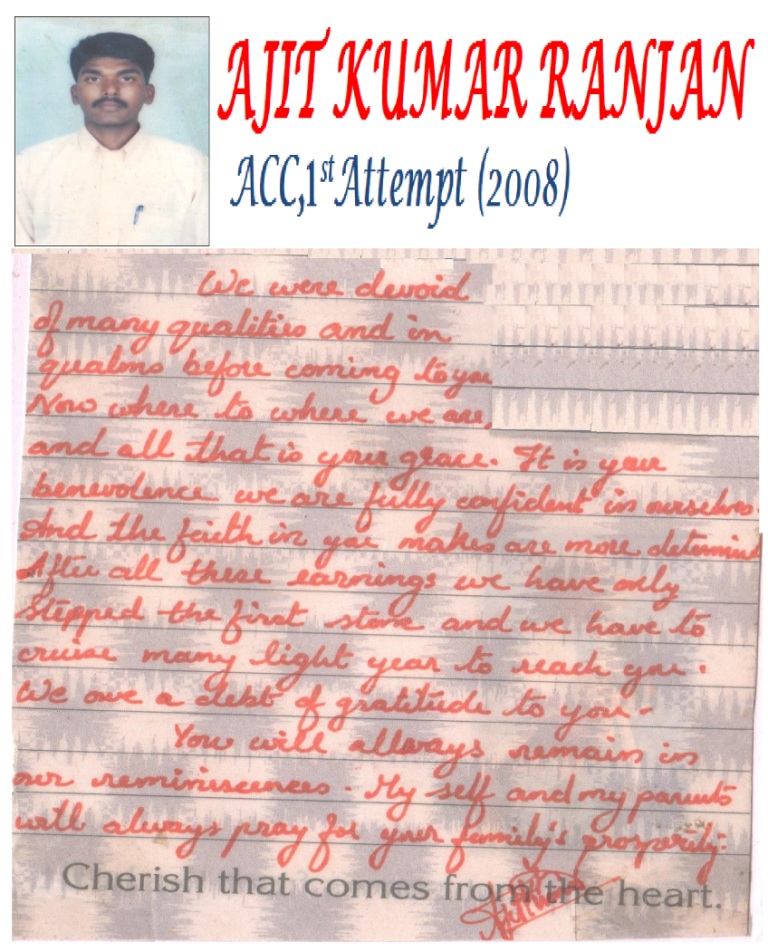 AJIT KUMAR RANJAN
ACC,1st Attempt (2008)
We were devoid
of many qualities and in
qualms before coming to you
Now where to where we are,
and all that is your grace. It is your
benevolence we are fully confident in ourselves.
And the faith in you makes are more determine
After all these earnings we have only
stepped the first stone and we have to
cruise many light year to reach you.
We owe a debt of gratitude to you-
You will allways remain in
our reminiscences. My self and my parents
will always pray for your family's prosperity.
Cherish that comes from the heart.